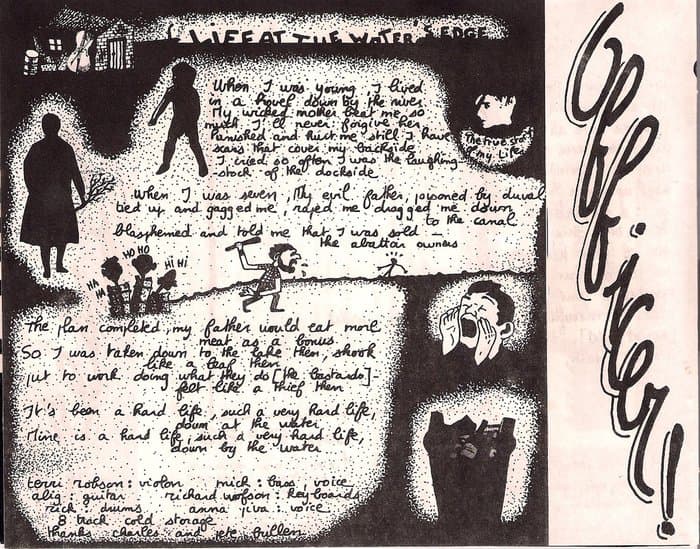 LIFE AT THE WATER'S EDGE
When I was young, I lived
in a hovel down by the river
My wicked mother beat me so
much I'll never forgive her
Punished and hurt me still I have
scars that cover my backside
I cried so often I was the laughing-
stock of the dockside
The true story
of my Life
When I was seven, My evil father, poisoned by
tied up and gagged me, raped me dragged me down
to the canal
blasphemed and told me that I was sold —
the abattoir owners
HA HA
HO HO
HI HI
The plan completed, my father would eat more
meat as a bonus
So I was taken down to the lake then, shook
like a leaf then
put to work doing what they do [the bastards]
felt like a thief then
It's been a hard life, such a very hard life,
down at the water
Mine is a hard life, such a very hard life,
down by the water
terri robson: violon mick: bass, voice
alig: guitar richard wolfson: keyboards
rick drums anna voice
8 track cold storage
thanks charles and pete bullen
Officer!